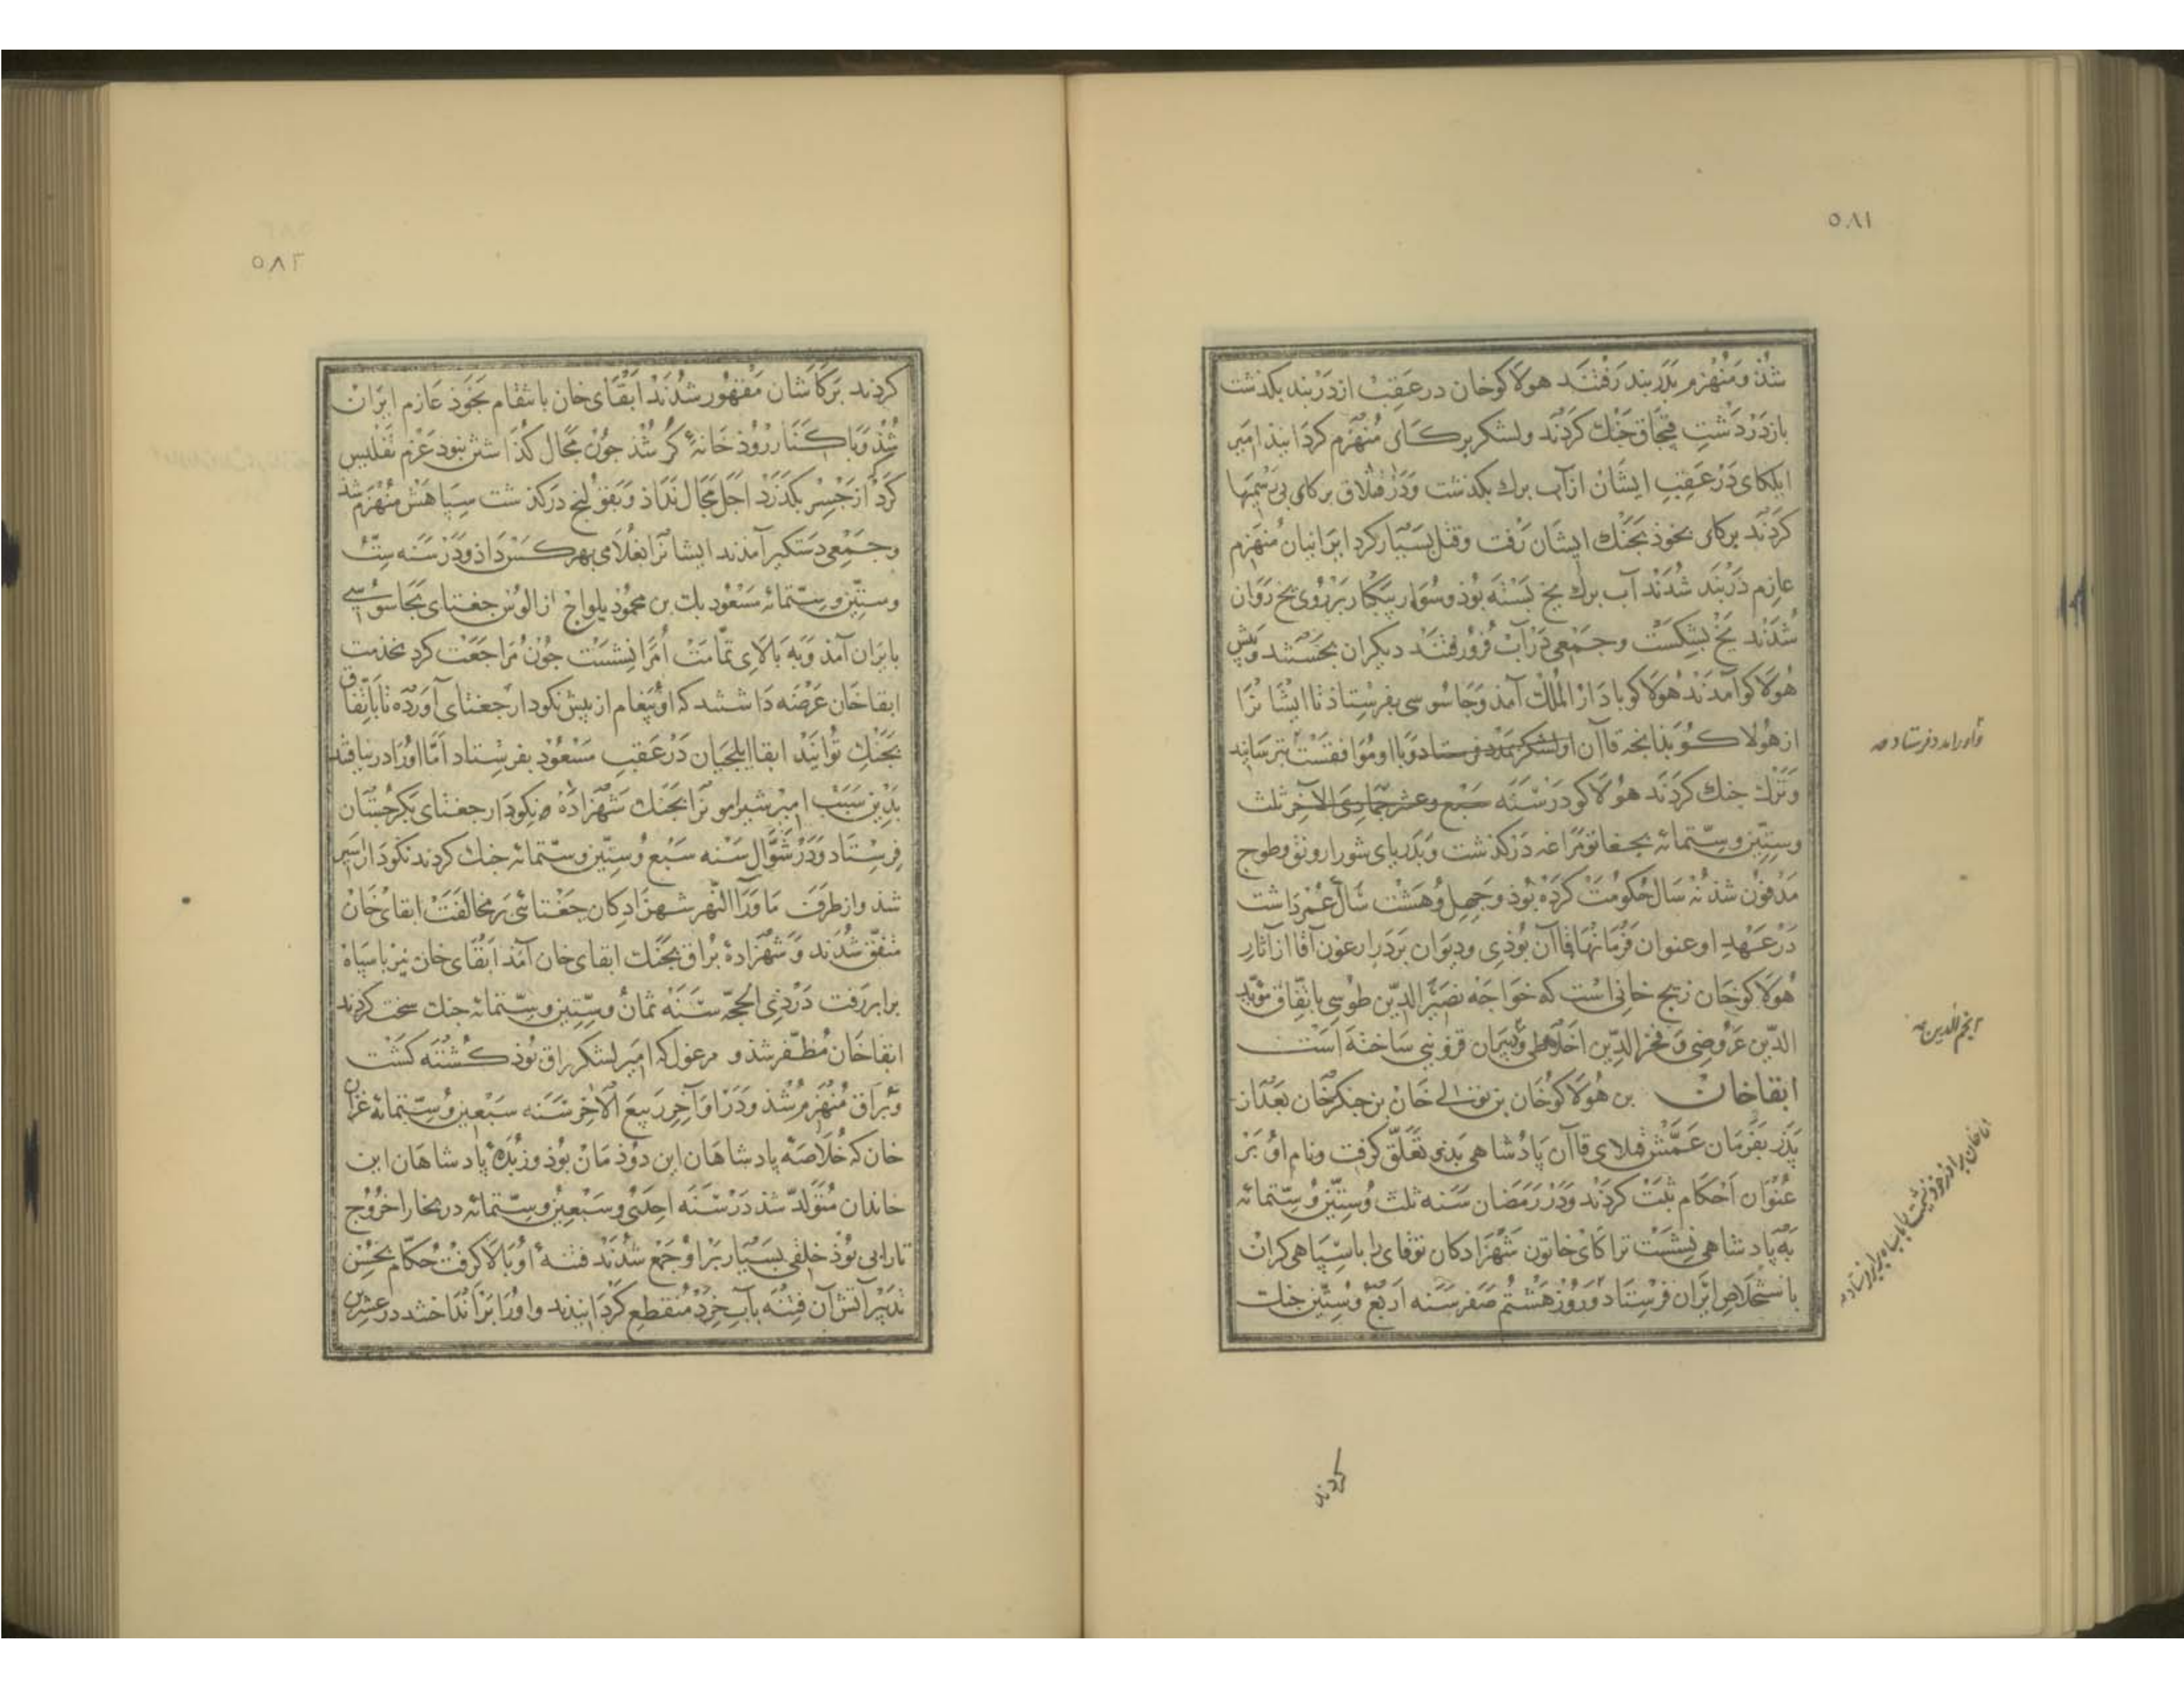 ٥٨١
شذ ومنهزم بدربند رفتند هولاكوخان در عقب از دربند بكذشت
باز در دشت قبجاق جنك كردند ولشكر بركاى منهزم كردانيذ امير
ايلكاى در عقب ايشان از آب برك بكذشت ودر قتلاق بركاى بى رسميها
كردند بركاى بخوذ بجنك ايشان رفت وقتل بسيار كرد ايرانيان منهزم
عازم دربند شدند آب برك يخ بسته بوذ وسوار بيكبار بر روى يخ روان
شدند يخ بشكست وجمعى در آب فرو رفتند ديكران بجستند وپيش
هولاكو آمدند هولاكو با دار الملك آمذ وجاسوسى بفرستاذ تا ايشانرا
از هولاكو بذانجه قاآن او لشكر بمدد فرستاد وبا او موافقست بترسانيد
وترك جنك كردند هولاكو در سنه سبع وعشر جمادى الآخر ثلث
وستين وستمائه بجغاتو مراغه در كذشت وبدرياى شور
مدفون شذ نه سال حكومت كرده بوذ وجهل وهشت سال عمر داشت
در عهد او عنوان فرمانها قاآن بوذى وديوان بر در ارغون آقا از آثار
هولاكوخان زيج خانى است كه خواجه نصير الدين طوسى باتفاق مؤيد
الدين عروضى وفخر الدين اخلاطى ودبيران قزوينى ساخته است
ابقاخان بن هولاكوخان بن تولى خان بن جنكزخان بعد از
پدر بفرمان عمش قبلاى قاآن پادشاهى بذو تعلق كرفت ونام او بر
عنوان احكام ثبت كردند ودر رمضان سنه ثلث وستين وستمائه
به پادشاهى نشست تراكاى خاتون شهزادكان توقاى را با سپاهى كران
باستخلاص ايران فرستاد وروز هشتم صفر سنه اربع وستين جنك
قاورا مدد فرستاد صه
نجم الدين صح
كردند
٥٨٢
كردند بركاشان مقهور شدند ابقاى خان بانتقام بخوذ عازم ايران
شذ وبا كنار روذ خانۀ كر شذ جون مجال كذاشتن نبود عزم تفليس
كرد از جسر بكذرد اجل مجال نداذ وبقولنج دركذشت سپاهش منهزم شد
وجمعى دستكير آمدند ايشانرا بغلامى بهر كس داذ ودر سنه ستّ
وستين وستمائه مسعود بك بن محمود يلواج از الوس جغتاى بجاسوسى
بايران آمذ وبه بالاى تمامت امرا بنشست جون مراجعت كرد بخدمت
ابقاخان عرضه داشتند كه او پيغام از پيش نكودار جغتاى آورده تا باتفاق
بجنك توانيد ابقا ايلجيان در عقب مسعود بفرستاد اما او را در نيافتند
بدين سبب امير شيرامو نرا بجنك شهزاده نكودار جغتاى بكرجستان
فرستاد ودر شوال سنه سبع وستين وستمائه جنك كردند نكودار اسير
شد واز طرف ماورا النهر شهزادكان جغتائى بر مخالفت ابقاى خان
متفق شدند وشهزاده براق بجنك ابقاى خان آمد ابقاى خان نيز با سپاه
برابر رفت در ذى الحجه سنه ثمان وستين وستمائه جنك سخت كردند
ابقاخان مظفر شذ و مرغول كه امير لشكر براق بوذ كشته كشت
وبراق منهزم شذ ودر اواخر ربيع الاخر سنه سبعين وستمائه غزان
خان كه خلاصه پادشاهان اين دوذمان بوذ وزبدۀ پادشاهان اين
خاندان متولد شذ در سنه احدى وسبعين وستمائه در بخارا خروج
تارابى بوذ خلقى بسيار بر او جمع شدند فتنۀ او بالا كرفت حكام بحسن
تدبير آتش آن فتنه بآب خرد منقطع كردانيدند واورا برانداختند در عشرين